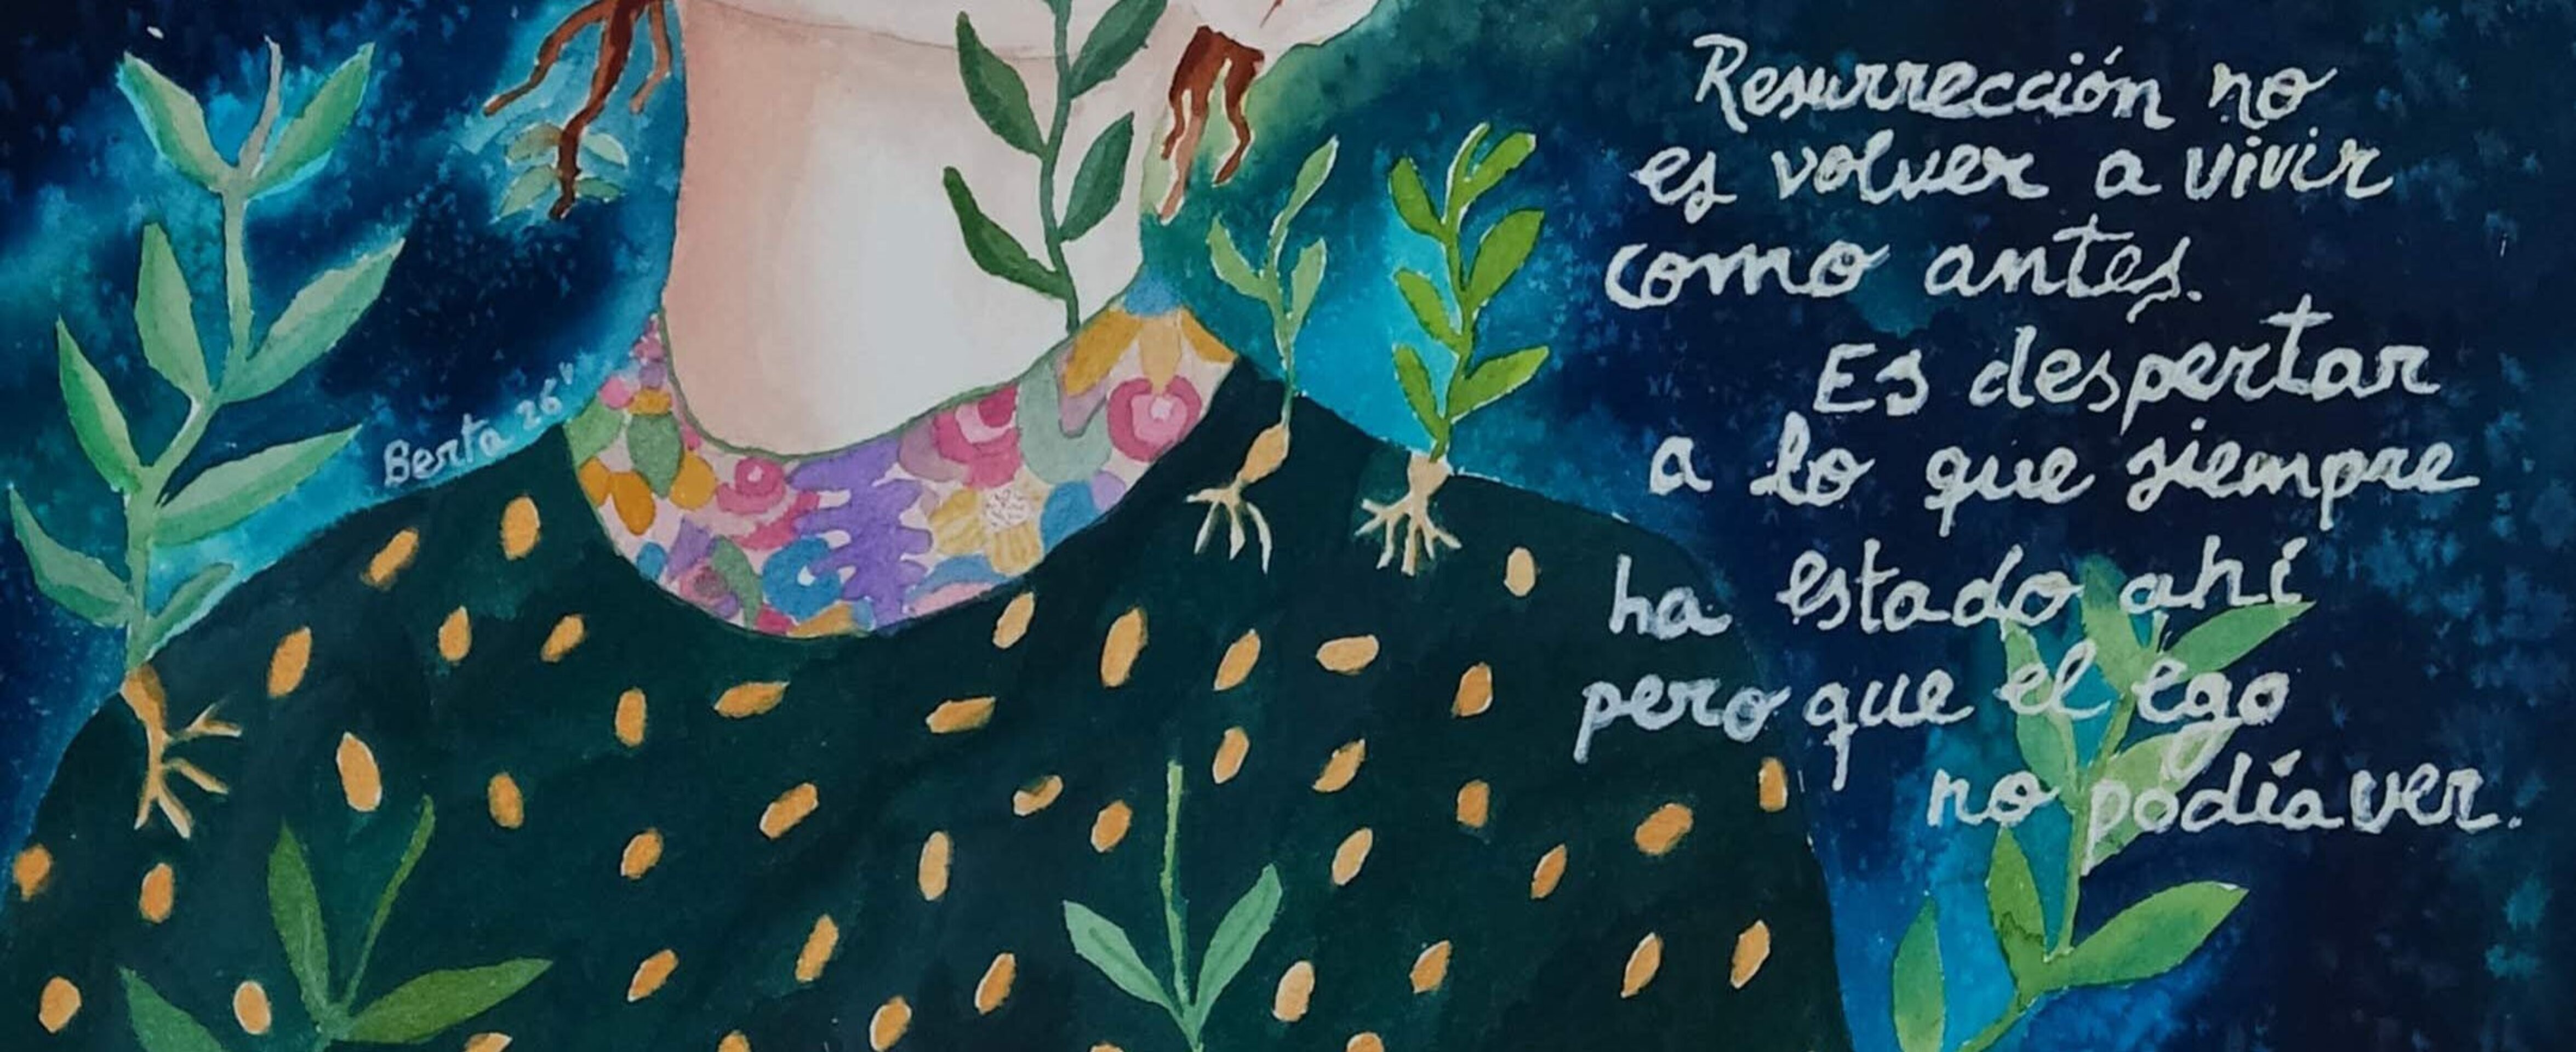 Resurrección no
es volver a vivir
como antes.
Es despertar
a lo que siempre
ha estado ahí
pero que el ego
no podía ver.
Berta 26'